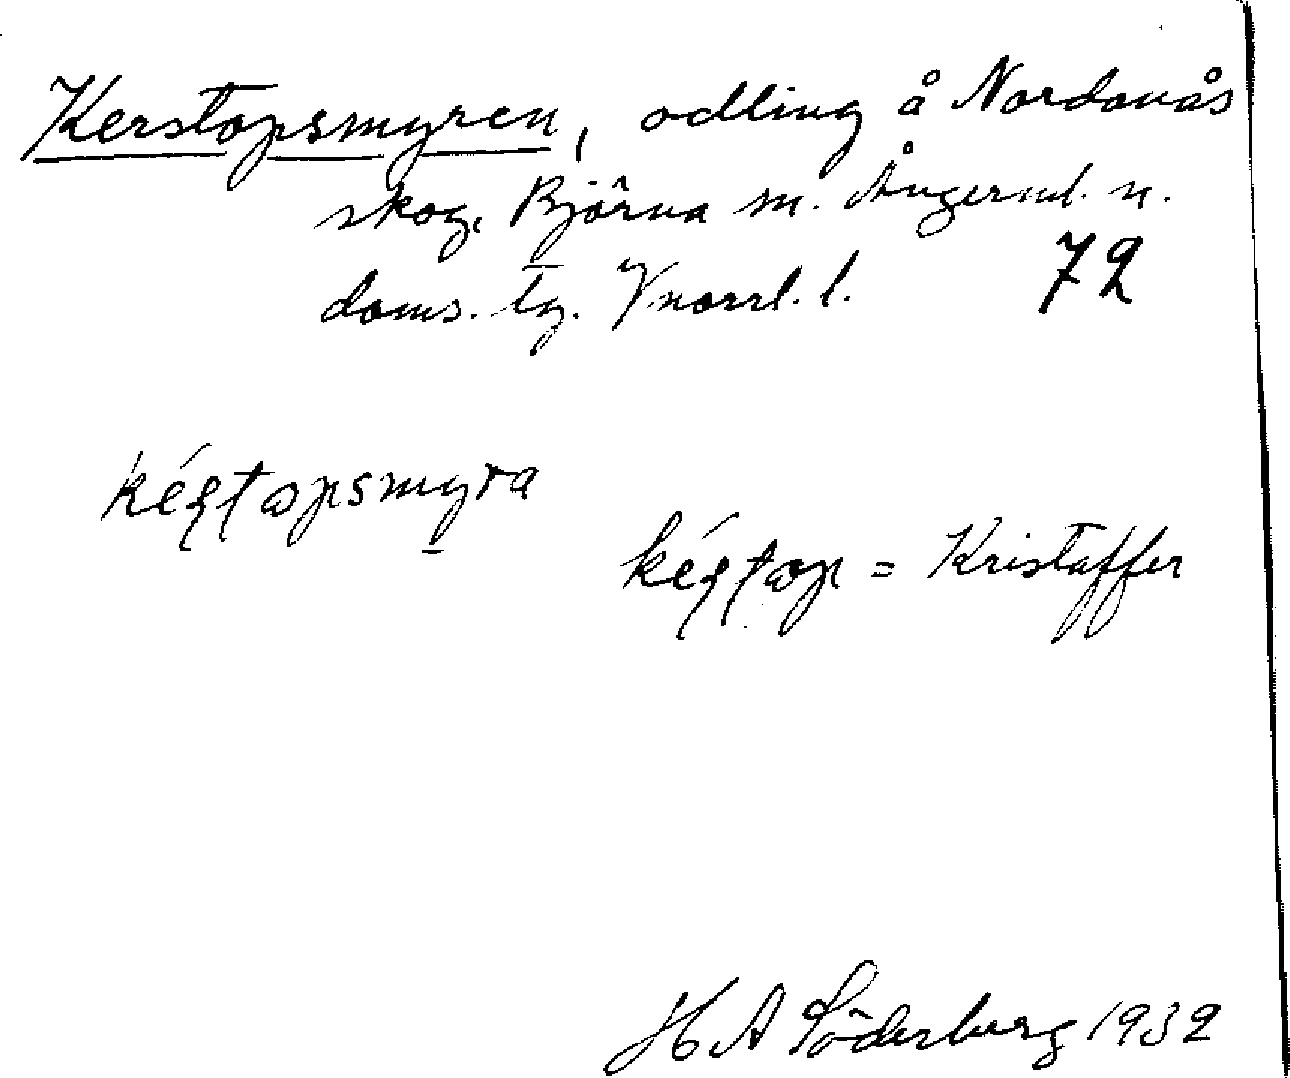 Kerstopsmyren, odling å Nordanås
skog, Björna sn. Ångerml. n.
doms. tg. Vnorrl. l. 72
kéꞩtapsmyra
kéꞩtap = Kristaffer
H A Söderberg 1932